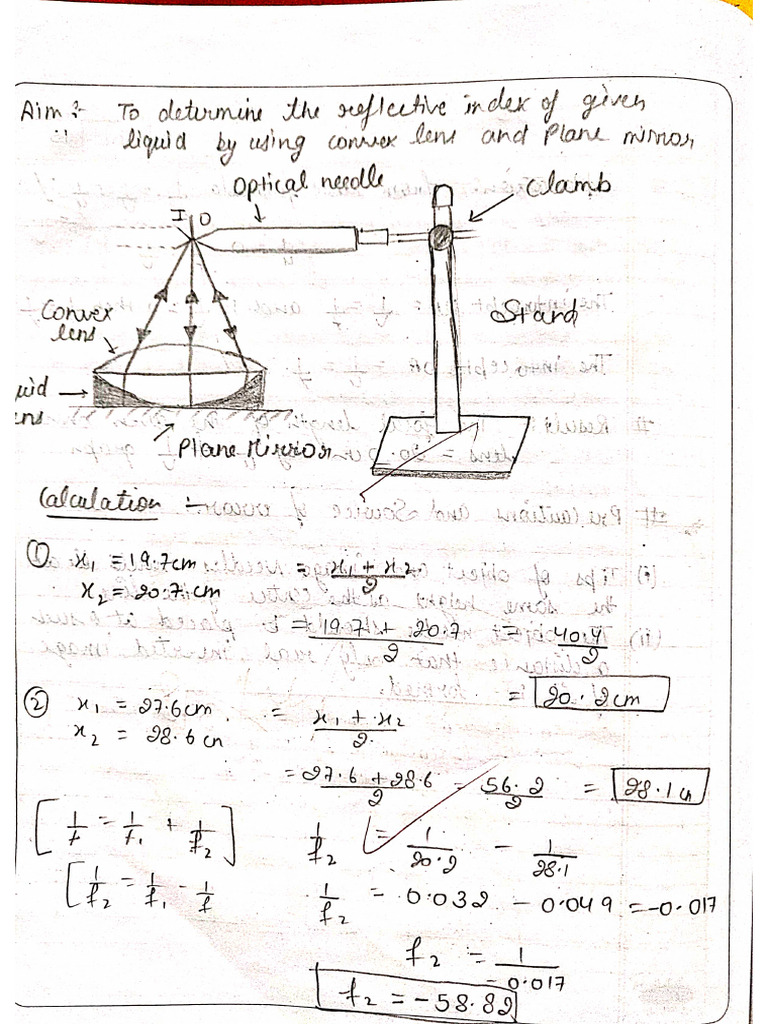 Aim :- To determine the reflective index of given
liquid by using convex lens and plane mirror
Optical needle
Clamb
I O
Convex
lens
Stand
uid
ens
Plane Mirror
Calculation :-
① x₁ = 19.7cm = x₁ + x₂ / 2
x₂ = 20.7cm
= 19.7 + 20.7 / 2 = 40.4 / 2
= 20.2cm
② x₁ = 27.6cm = x₁ + x₂ / 2
x₂ = 28.6cm
= 27.6 + 28.6 / 2 = 56.2 / 2 = 28.1cm
[1/f = 1/f₁ + 1/f₂] 1/f₂ = 1/20.2 - 1/28.1
[1/f₂ = 1/f₁ - 1/f 1/f₂ = 0.032 - 0.049 = -0.017
f₂ = 1 / -0.017
f₂ = -58.82